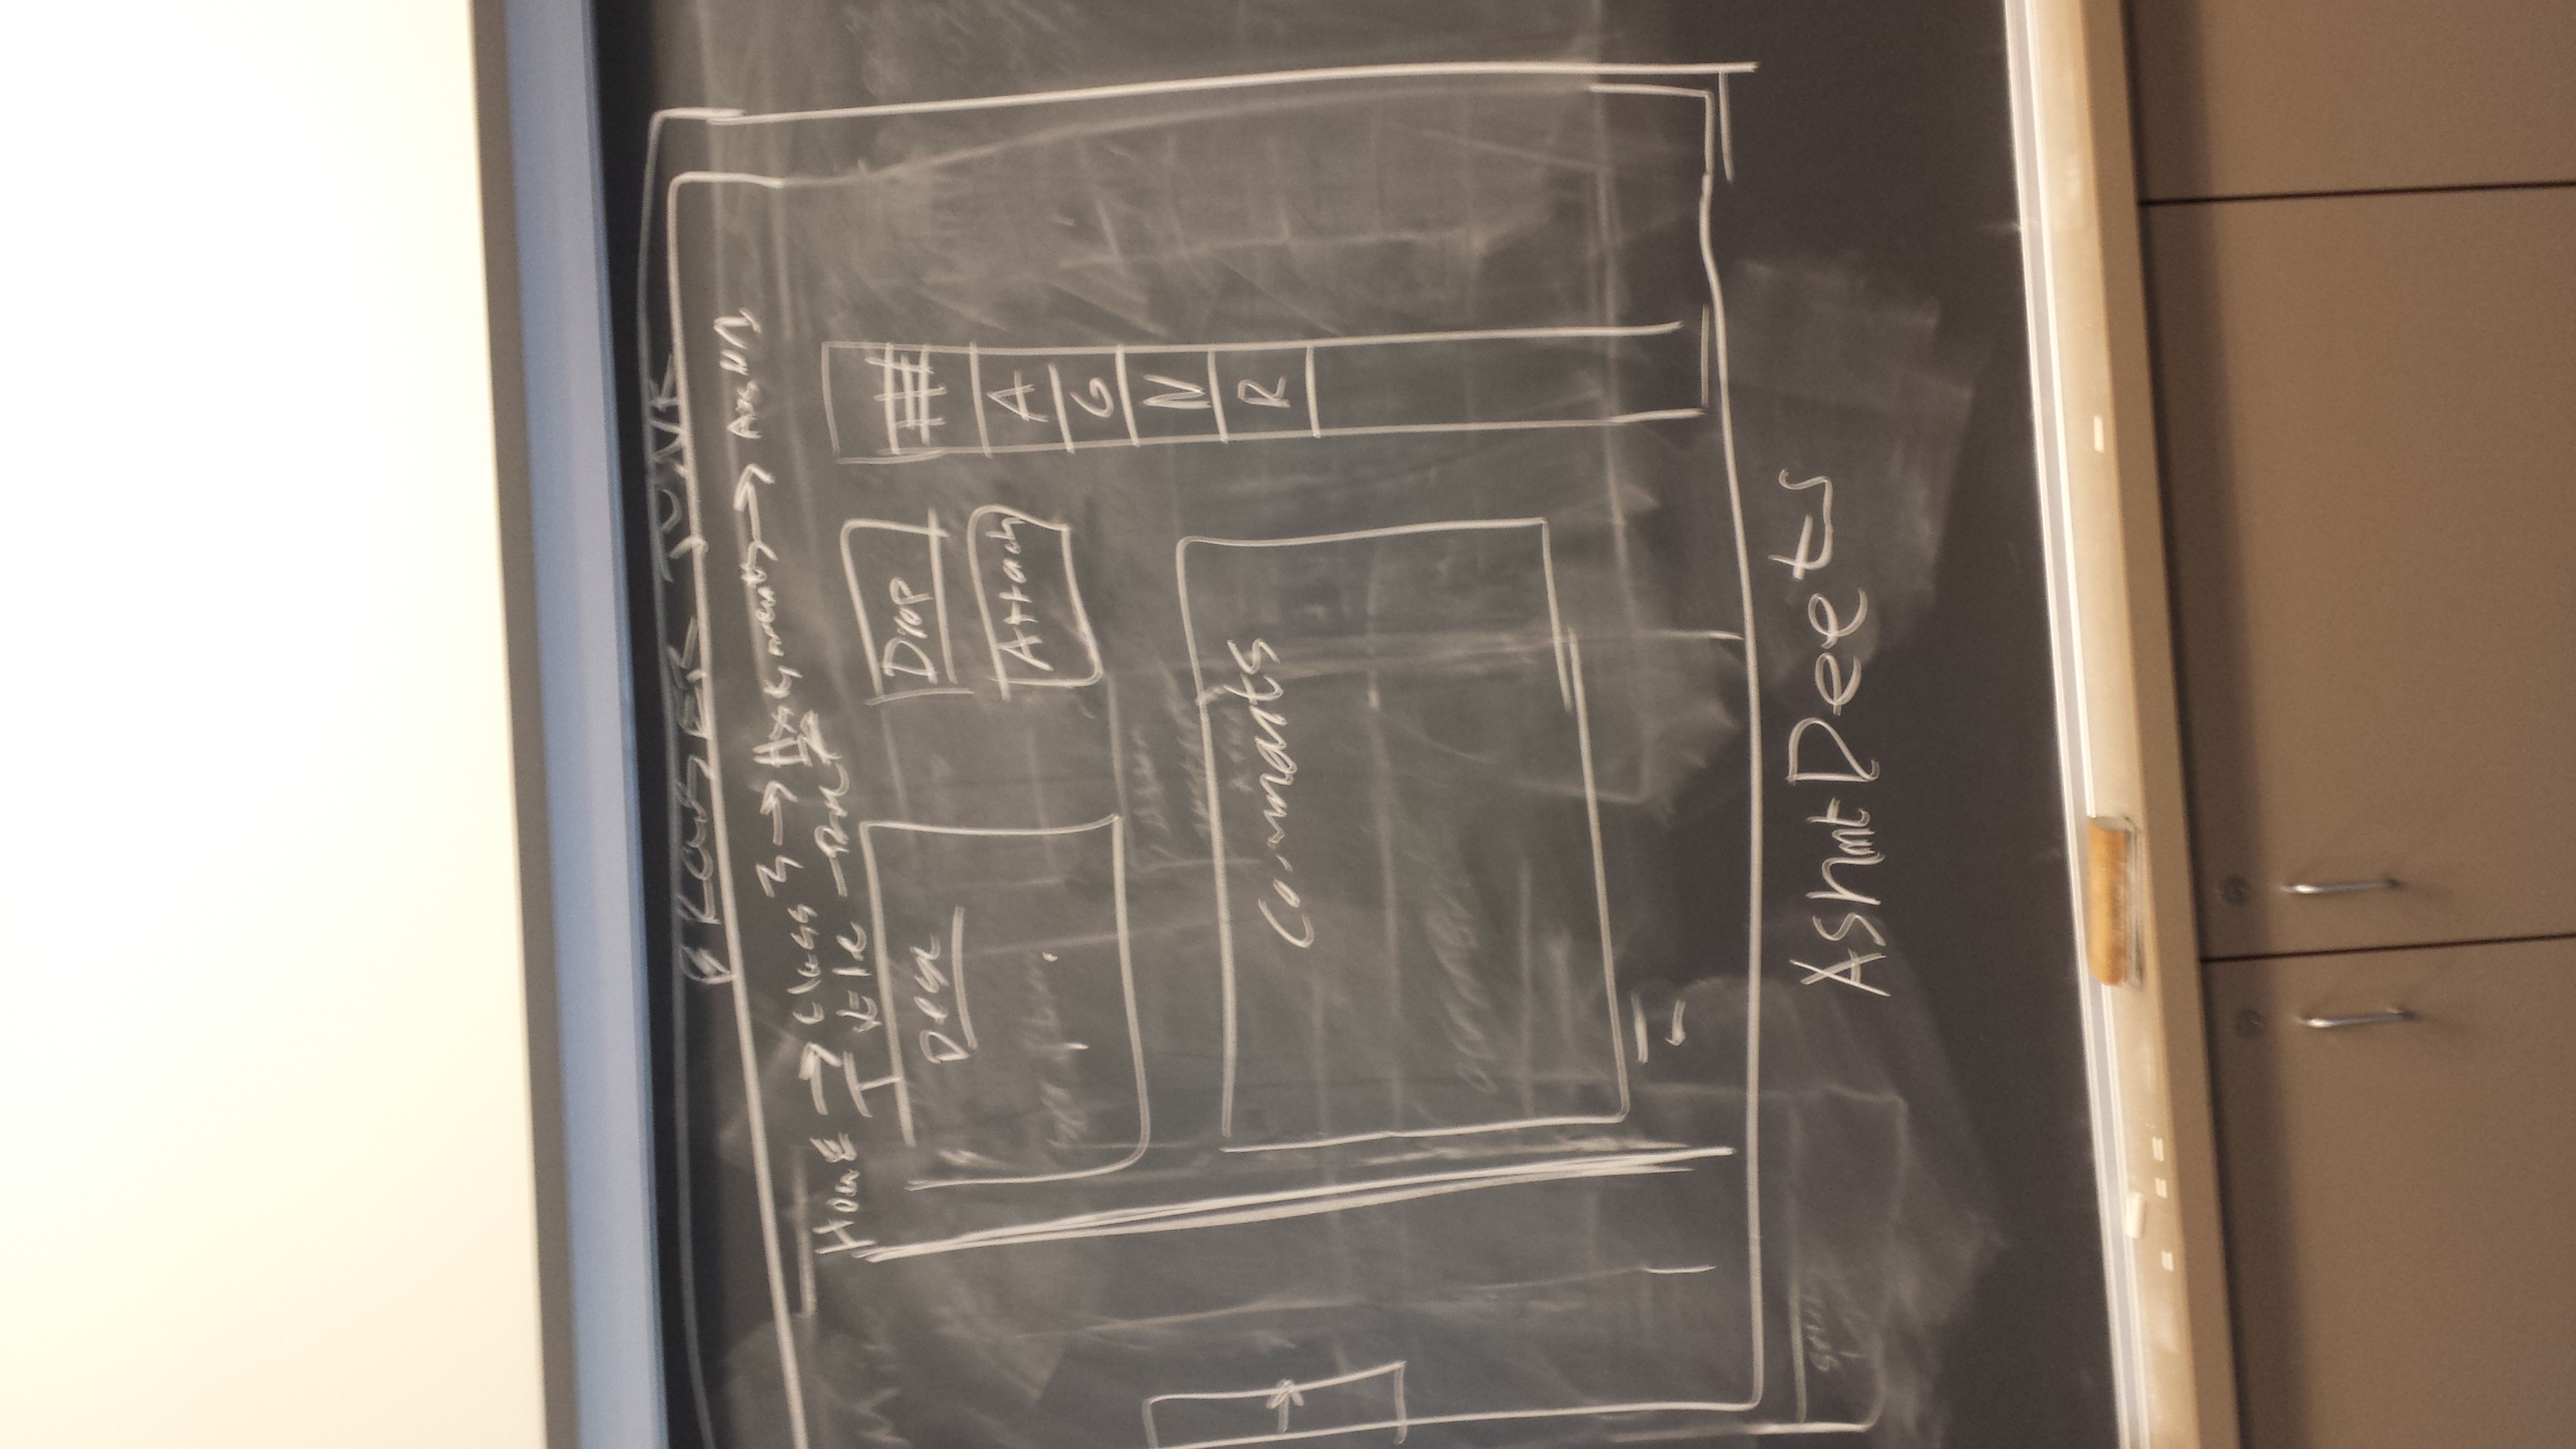 BROWSER JUNK
Home → Class 3 → Assignments → Asn #1
Title
Desc
Drop
Attach
A
G
N
R
Comments
AshmtDeets